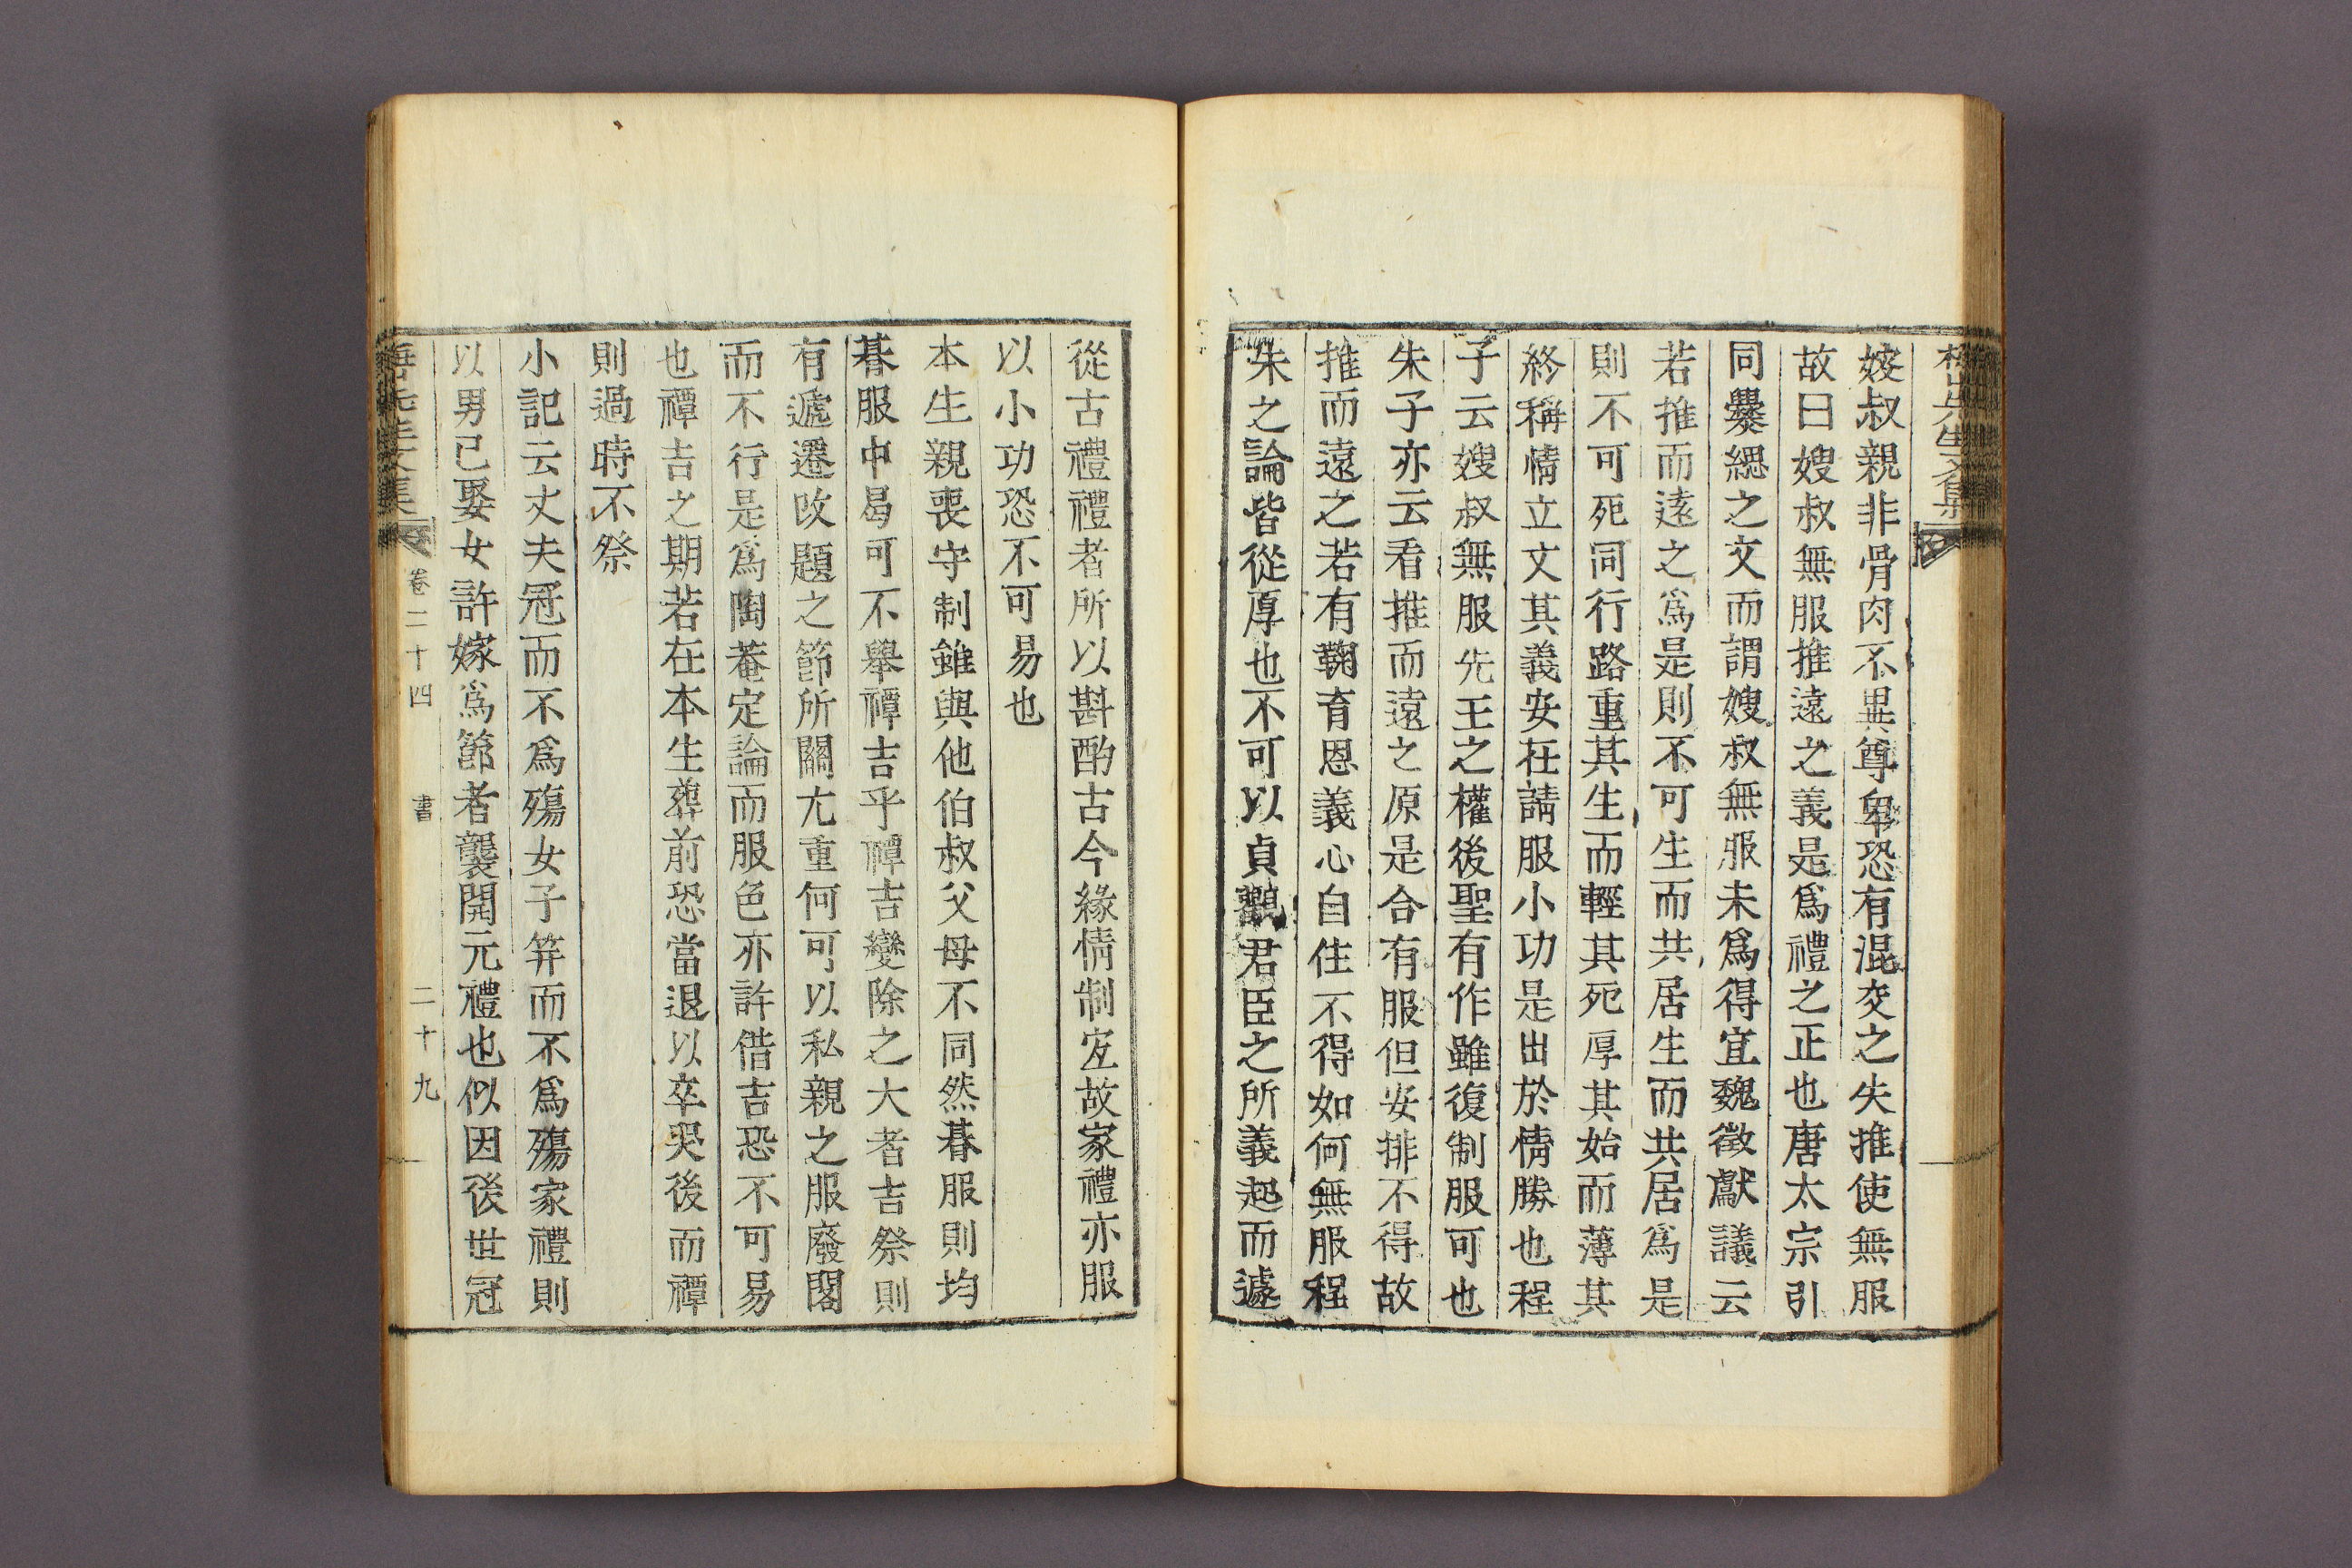 先生文集
嫂叔親非骨肉不異尊卑恐有混交之失推使無服
故曰嫂叔無服推遠之義是爲禮之正也唐太宗引
同爨緦之文而謂嫂叔無服未爲得宜魏徵獻議云
若推而遠之爲是則不可生而共居生而共居爲是
則不可死同行路重其生而輕其死厚其始而薄其
終稱情立文其義安在請服小功是出於情勝也程
子云嫂叔無服先王之權後聖有作雖復制服可也
朱子亦云看推而遠之原是合有服但安排不得故
推而遠之若有鞠育恩義心自住不得如何無服程
朱之論皆從厚也不可以貞觀君臣之所義起而遽
從古禮禮者所以斟酌古今緣情制宜故家禮亦服
以小功恐不可易也
本生親喪守制雖與他伯叔父母不同然朞服則均
朞服中曷可不擧禫吉乎禫吉變除之大者吉祭則
有遞遷改題之節所關尤重何可以私親之服廢閣
而不行是爲陶菴定論而服色亦許借吉恐不可易
也禫吉之期若在本生葬前恐當退以卒哭後而禫
則過時不祭
小記云丈夫冠而不爲殤女子笄而不爲殤家禮則
以男已娶女許嫁爲節者襲開元禮也似因後世冠
先生文集 卷二十四 書 二十九